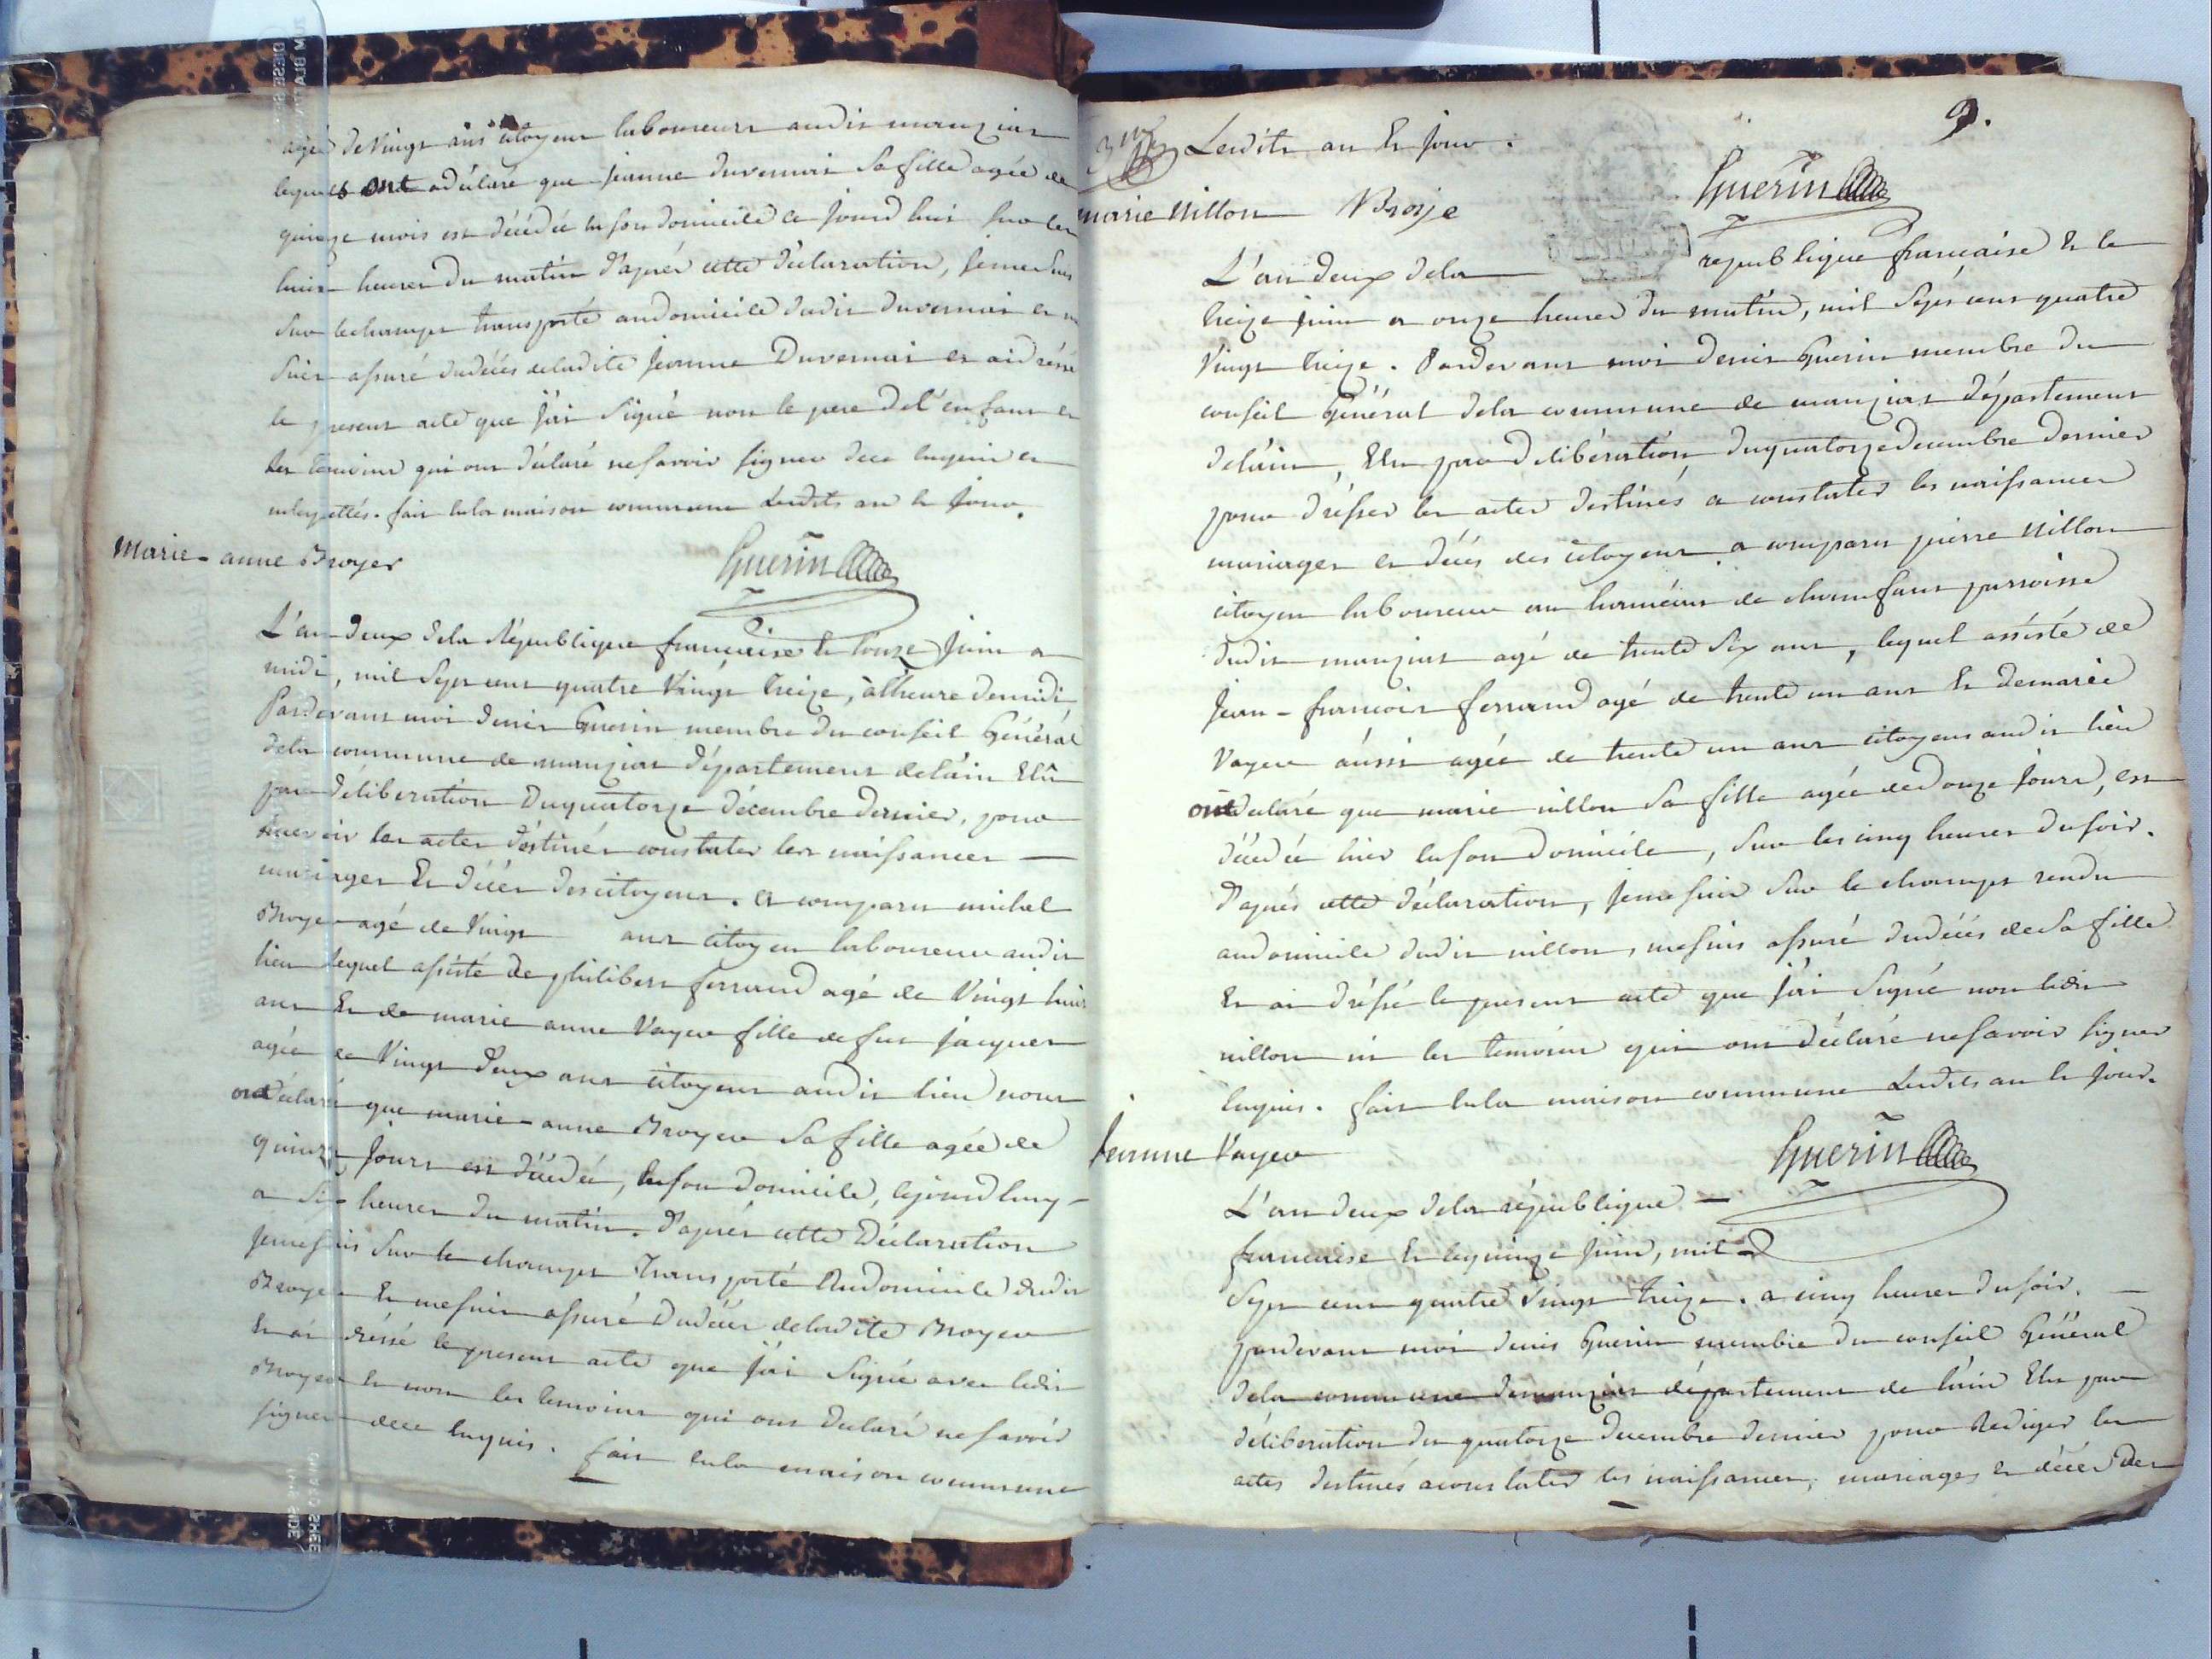 agée de vingt ans citoyens laboureurs audit manziat
lequels ont adéclaré que jeanne duvernai sa fille agée de
quinze mois est décédée en son domicile ce jourd'hui sur les
huit heures du matin d'aprés cette déclaration, je me suis
sur le champs transporté au domicile dudit duvernai et m
suis assuré du décés de ladite jeanne Duvernai et ai dréssé
le present acte que j'ai signé non le pere de l'enfant et
les temoins qui ont déclaré ne savoir signer de ce enquis et
interpellés. fait en la maison commune Lesdits an et jour.
Marie-anne Broyer
Guerin
L'an deux de la République française le onze juin a
midi, mil sept cent quatre vingt treize, à l'heure de midi
Pardevant moi denis Guerin membre du conseil Général
de la commune de manziat département de l'ain Elû
par déliberation du quatorze décembre dernier, pour
les actes déstinés constater les naissances
mariages Et décés des citoyens. a comparu michel
Broyer agé de vingt ans citoyen laboureur audit
lieu lequel assisté de philibert ferrand agé de vingt huit
ans Et de marie anne Vayer fille de fut jacques
agée de vingt deux ans citoyens audit lieu nous
ont déclaré que marie-anne Broyer sa fille agée de
quinze jours est décédée, en son domicile, cejourd'huy
a six heures du matin. d'aprés cette Déclaration
je me suis sur le champs Transporté Au domicile dudit
Broyer Et me suis assuré du décés de ladite Broyer
Et ai dréssé le present acte que j'ai signé avec ledit
Broyer et non les temoins qui ont déclaré ne savoir
signer de ce enquis. fait en la maison commune
9.
Lesdits an Et jour.
Guerin
marie Nillon Broye
L'an deux de la republique française Et le
treize juin a onze heures du matin, mil sept cent quatre
vingt treize. Pardevant moi denis Guerin membre du
conseil Général de la commune de manziat département
de l'ain, Elu par délibération du quatorze decembre dernier
pour drésser les actes destinés a constater les naissances
mariages et décés des citoyens a comparu pierre Nillon
citoyen laboureur au hameau de chanfant parroisse
dudit manziat agé de trente six ans, lequel assisté de
Jean-francois ferrand agé de trente un ans Et de marie
Vayer aussi agée de trente un ans citoyens audit lieu
ont déclaré que marie nillon sa fille agée de douze jours, est
décédée hier en son domicile, sur les cinq heures du soir.
d'aprés cette déclaration, je me suis sur le champs rendu
au domicile dudit nillon, me suis assuré du décés de sa fille
Et ai dréssé le present acte que j'ai signé non ledit
nillon ni les temoins qui ont déclaré ne savoir signer
enquis. fait en la maison commune Lesdits an et jour.
Jeanne Vayer
Guerin
L'an deux de la république
francaise Et le quinze juin, mil
sept cent quatre vingt treize. a cinq heures du soir.
pardevant moi denis Guerin membre du conseil Général
de la commune de manziat département de l'ain Elu par
déliberation du quatorze decembre dernier pour Rediger les
actes destinés a constater les naissances, mariages et décés des